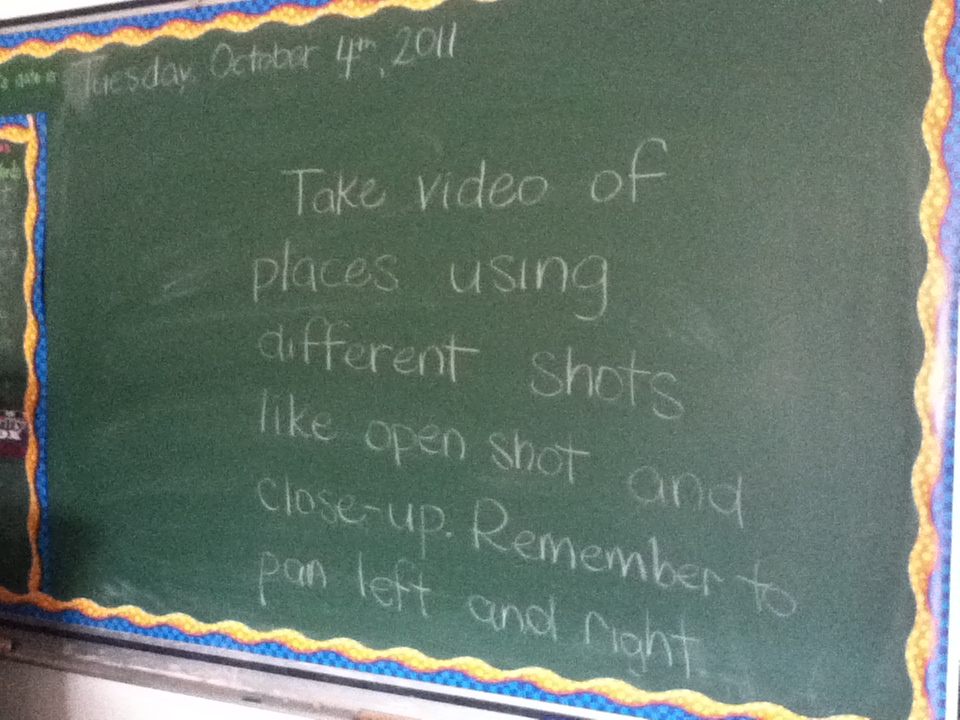 Tuesday, October 4th, 2011
Take video of
places using
different shots
like open shot and
close-up. Remember to
pan left and right